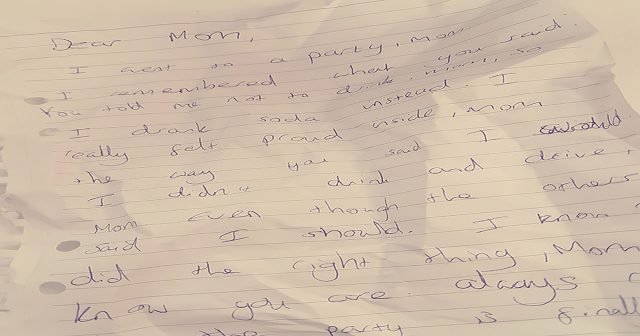 Dear Mom,
I went to a party, Mom
I remembered what you said.
You told me not to drink, mom, so
I drank soda instead. I
really felt proud inside, Mom
the way you said I would.
I didn't drink and drive,
Mom even though the others
said I should. I know I
did the right thing, Mom
know you are always
the party is finall